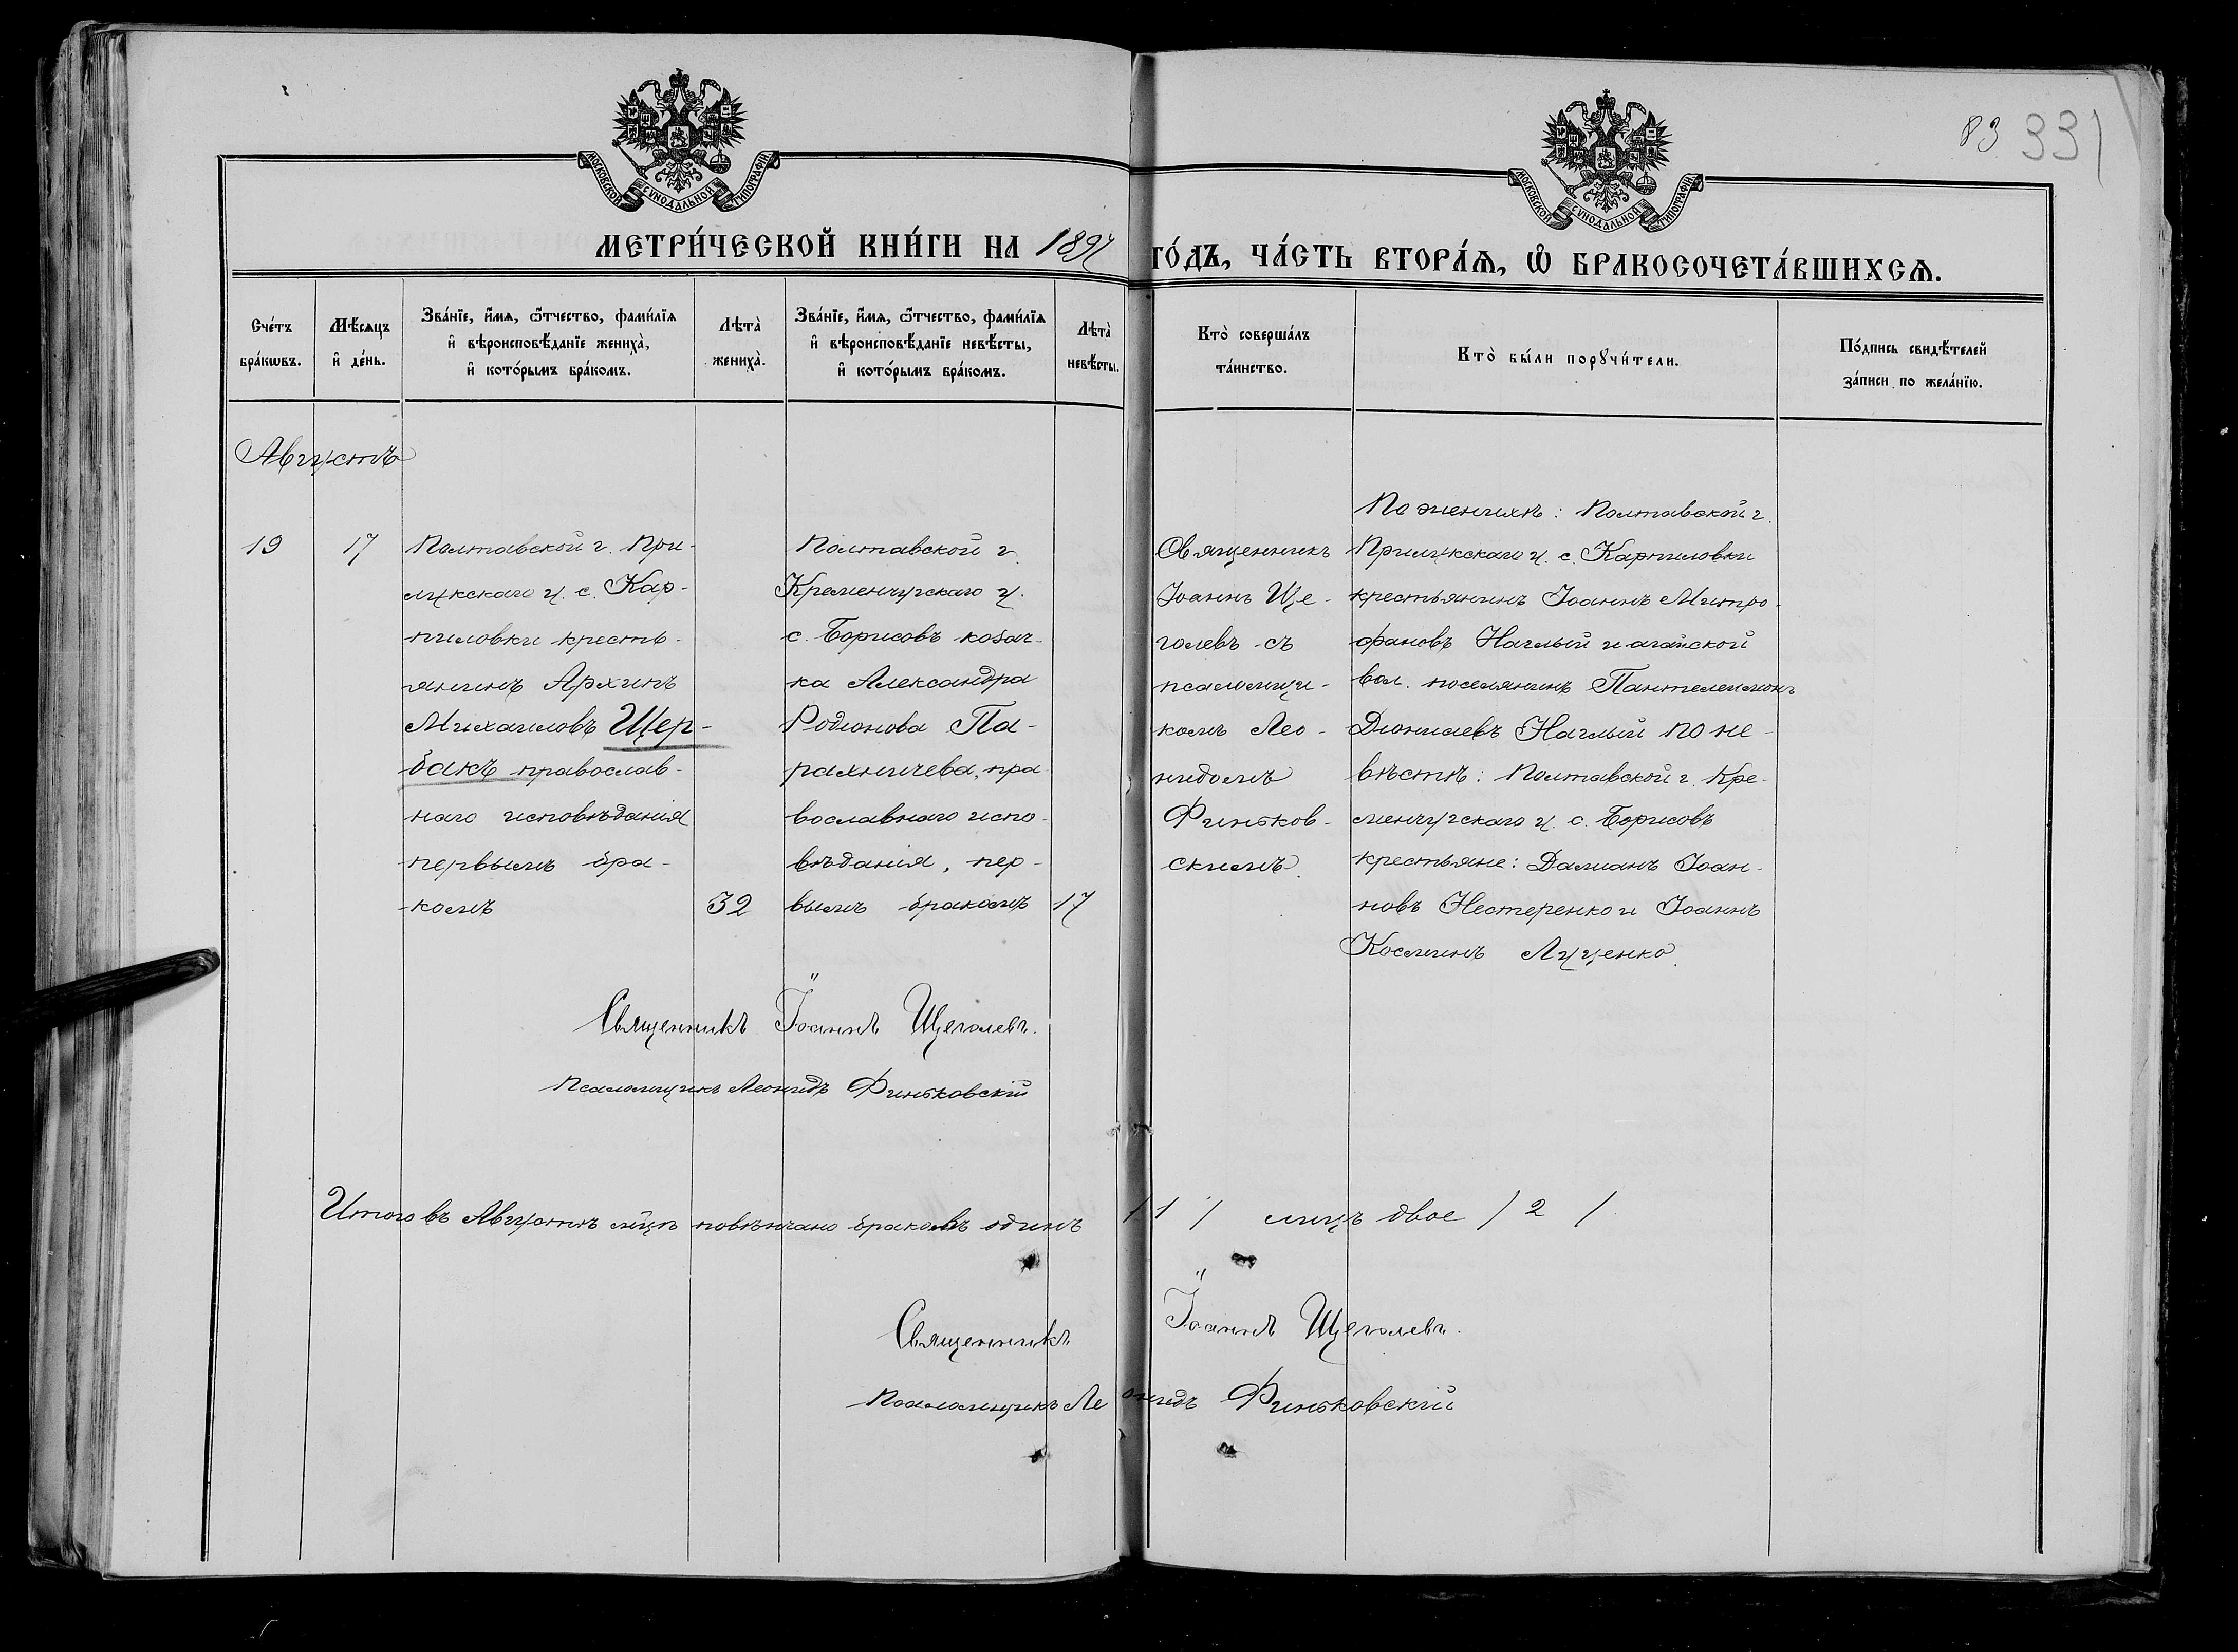 МОСКОВСКОЙ СѴНОДАЛЬНОЙ ТИПОГРАФІИ
МОСКОВСКОЙ СѴНОДАЛЬНОЙ ТИПОГРАФІИ
83 331
МЕТРИ́ЧЕСКОЙ КНИ́ГИ НА 1897 ГО́ДЪ, ЧА́СТЬ ВТОРА́Ѧ, Ѡ҆ БРАКОСОЧЕТА́ВШИХСѦ.
Сче́тъ
бра́кѡвъ.
Мѣ́сяцъ
и҆ де́нь.
Зва́нїе, и҆́мя, ѻ҆́тчество, фами́лїя
и҆ вѣроисповѣ́данїе жениха̀,
и҆ кото́рымъ бра́комъ.
Лѣта̀
жениха̀.
Зва́нїе, и҆́мя, ѻ҆́тчество, фами́лїя
и҆ вѣроисповѣ́данїе невѣ́сты,
и҆ кото́рымъ бра́комъ.
Лѣта̀
невѣ́сты.
Кто̀ соверша́лъ
та́инство.
Кто̀ бы́ли порꙋчи́тели.
По́дпись свидѣ́телей
за́писи по жела́нїю.
Августъ
19
17
Полтавской г. При-
лукскаго у. с. Кар-
пиловки кресть-
янинъ Архипъ
Михаиловъ Щер-
бакъ православ-
наго исповѣданія
первымъ бра-
комъ
32
Полтавской г.
Кременчугскаго у.
с. Борисовъ козач-
ка Александра
Родионова Па-
рахничева, пра-
вославнаго испо-
вѣданія, пер-
вымъ бракомъ
17
Священникъ
Іоаннъ Ще-
голевъ съ
псаломщи-
комъ Лео-
нидомъ
Финьков-
скимъ.
По женихѣ: Полтавской г.
Прилукскаго у. с. Карпиловки
крестьянинъ Іоаннъ Митро-
фановъ Наглый и агайской
вол. поселянинъ Пантелеимонъ
Дионисаевъ Наглый по не-
вѣстѣ: Полтавской г. Кре-
менчугскаго у. с. Борисовъ
крестьяне: Дамианъ Іоан-
новъ Нестеренко и Іоаннъ
Космннъ Луценко.
Священникъ Іоаннъ Щеголевъ.
Псаломщикъ Леонидъ Финьковскій
Итого въ Августѣ мцѣ повѣнчано браковъ одинъ / 1 / лицъ двое / 2 /
Священникъ Іоаннъ Щеголевъ.
Псаломщикъ Леонидъ Финьковскій